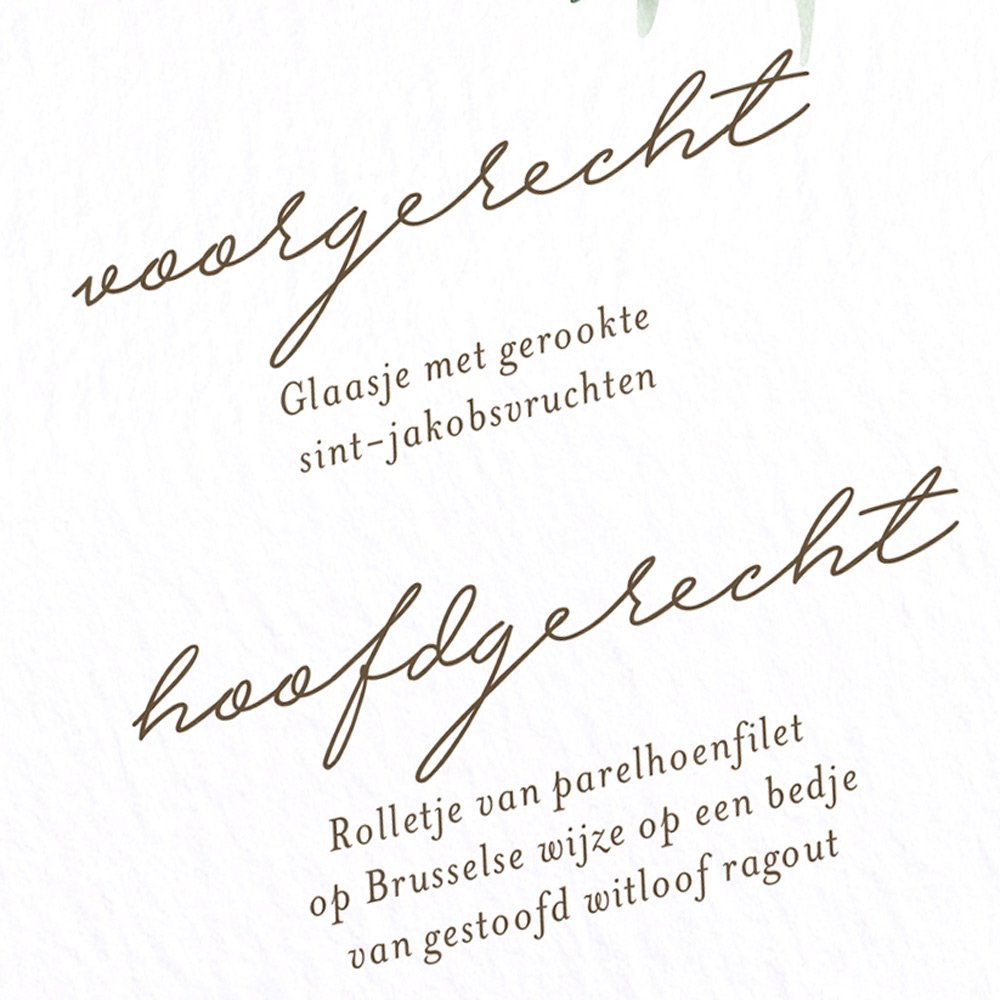 voorgerecht
Glaasje met gerookte
sint-jakobsvruchten
hoofdgerecht
Rolletje van parelhoenfilet
op Brusselse wijze op een bedje
van gestoofd witloof ragout